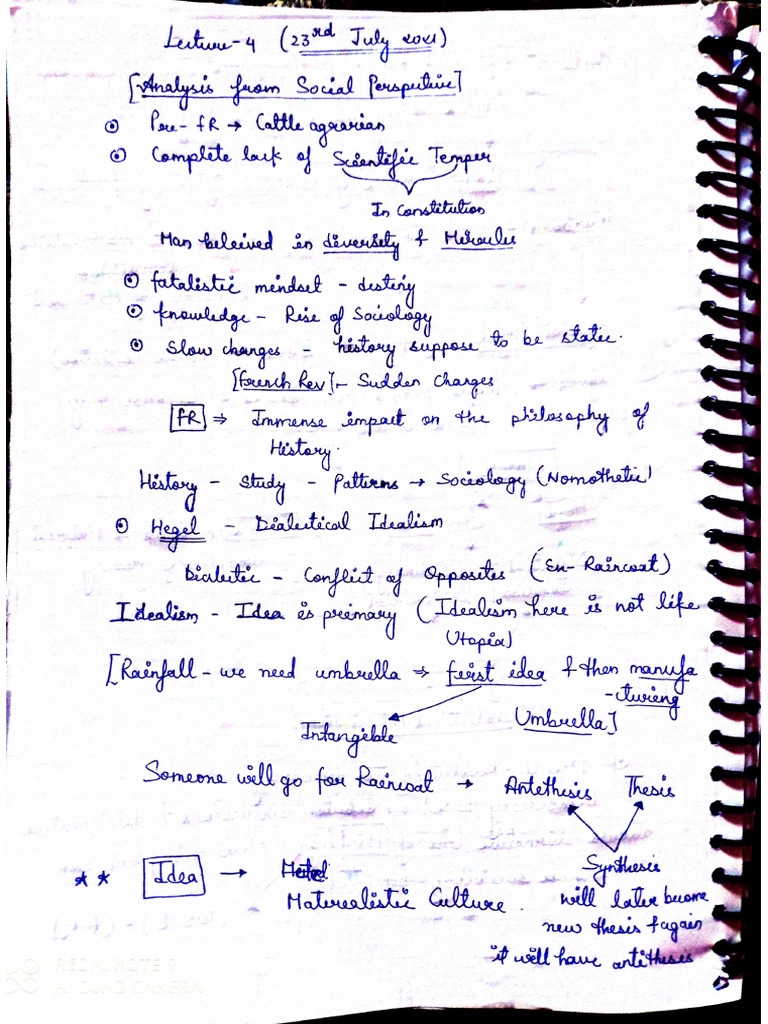 Lecture-4 (23rd July 2021)
[Analysis from Social Perspective]
Pre-FR → Cattle agrarian
Complete lack of Scientific Temper
In Constitution
Man beleived in diversity & Miracles
fatalistic mindset - destiny
knowledge - Rise of Sociology
Slow changes - history suppose to be static.
[French Rev] - Sudden Changes
FR ⇒ Immense impact on the philosophy of
History.
History - Study - Patterns → Sociology (Nomothetic)
Hegel - Dialectical Idealism
Dialectic - Conflict of Opposites (En-Raincoat)
Idealism - Idea is primary (Idealism here is not like
Utopia)
[Rainfall - we need umbrella ⇒ first idea & then manufa
-cturing
Umbrella]
Intangible
Someone will go for Raincoat → Antethesis Thesis
Synthesis
** Idea →
Materealistic Culture. will later become
new thesis & again
it will have antithesis
REDMI NOTE 9
AI QUAD CAMERA